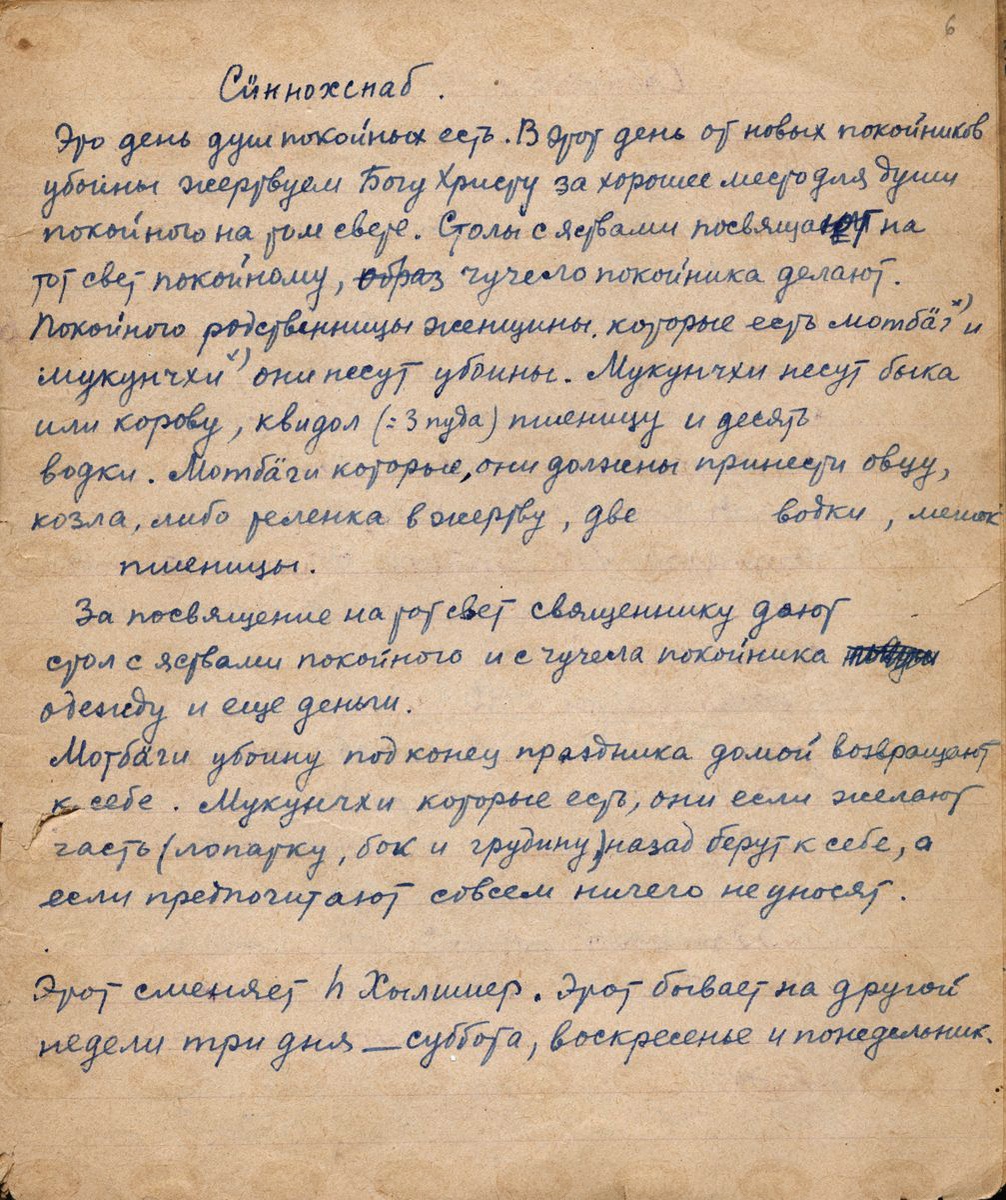 6
Сӥннохснаб.
Это день душ покойных есть. В этот день от новых покойников
убоины жертвуем Богу Христу за хорошее место для души
покойного на том свете. Столы с яствами посвящают на
тот свет покойному, образ чучело покойника делают.
Покойного родственницы женщины, которые есть мотбӓг х) и
мукунчхи х) они несут убоины. Мукунчхи несут быка
или корову, квидол (= 3 пуда) пшеницу и десять
водки. Мотбӓги которые, они должны принести овцу,
козла, либо теленка в жертву, две водки, мешок
пшеницы.
За посвящение на тот свет священнику дают
стол с яствами покойного и с чучела покойника
одежду и еще деньги.
Мотбӓги убоину под конец праздника домой возвращают
к себе. Мукунчхи которые есть, они если желают
часть (лопатку, бок и грудину) назад берут к себе, а
если предпочитают совсем ничего не уносят.
Этот сменяет һ Хылшиер. Этот бывает на другой
недели три дня — суббота, воскресенье и понедельник.